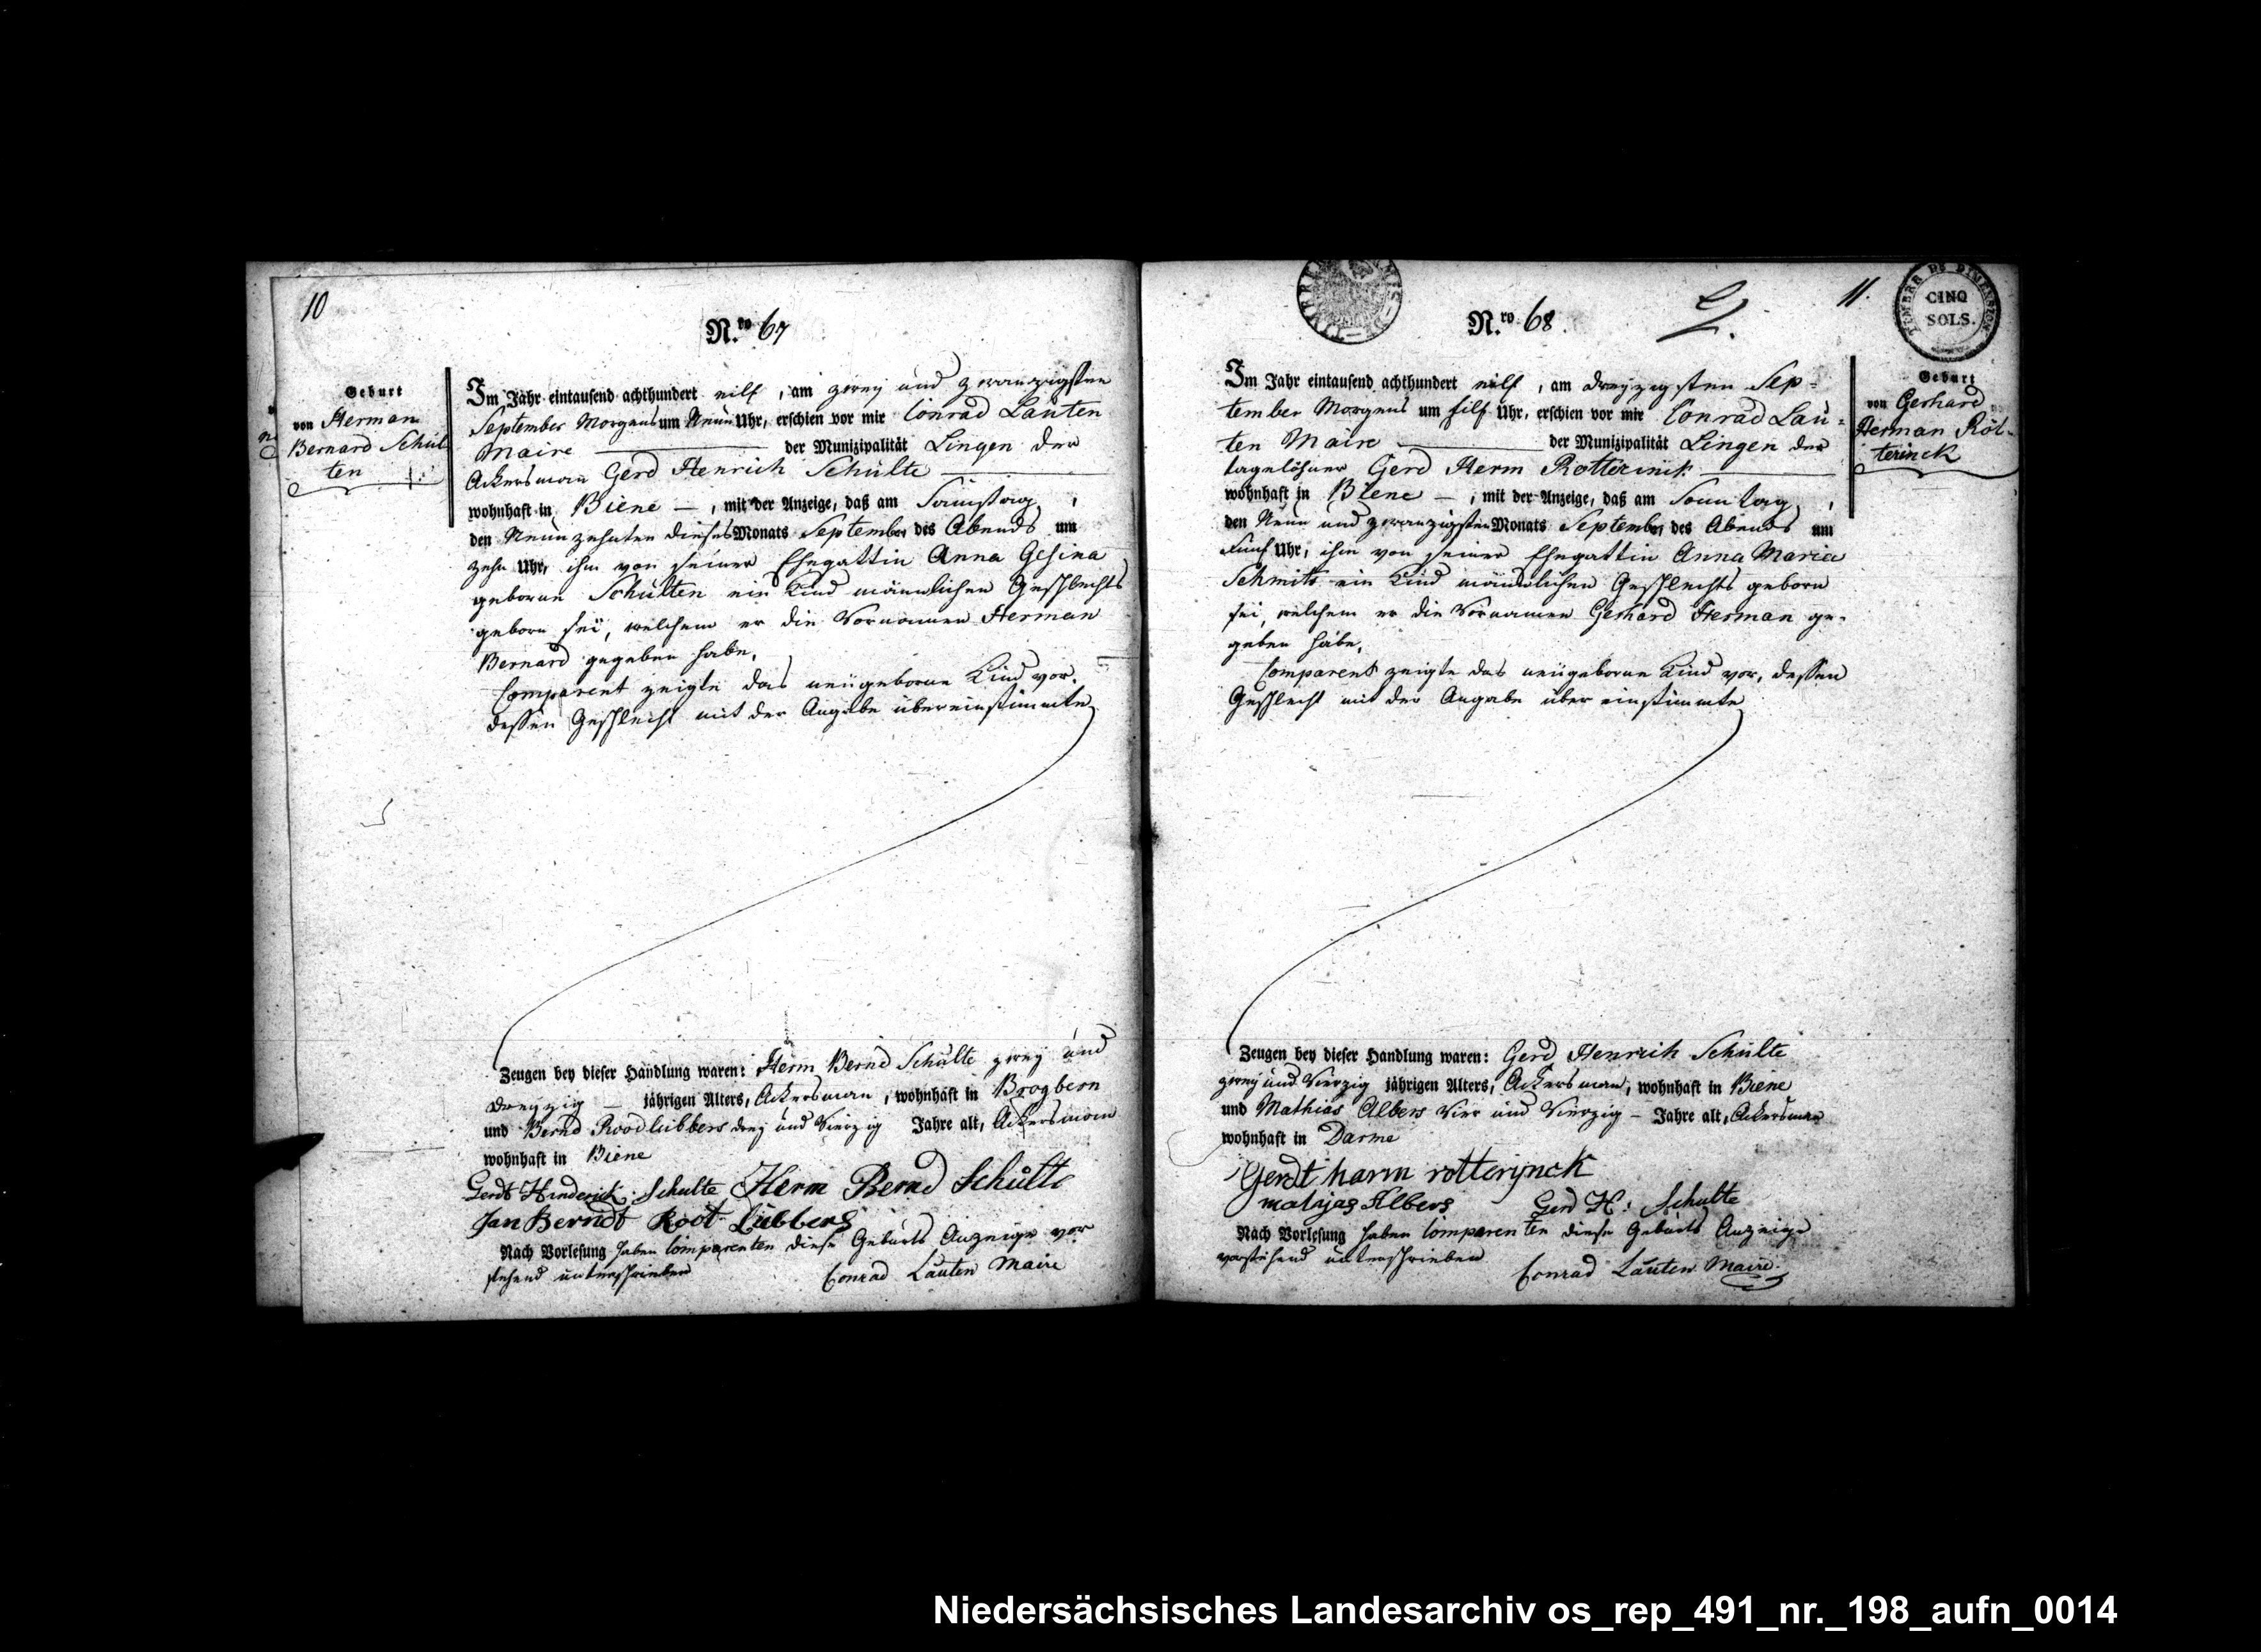 10
N.ro 67
Geburt
von Herman
Bernard Schul
ten
Im Jahr eintausend achthundert eilf, am zwey und zwanzigsten
September Morgens um Neun Uhr, erschien vor mir Conrad Lauten
Maire der Munizipalität Lingen der
Ackersman Gerd Henrich Schulte
wohnhaft in Biene —, mit der Anzeige, daß am Samstag,
den Neunzehnten dieses Monats September des Abends um
zehn Uhr, ihm von seiner Ehegattin Anna Gesina
geborne Schulten ein Kind männlichen Geschlechts
geborn sei, welchem er die Vornamen Herman
Bernard gegeben habe.
Comparent zeigte das neugeborne Kind vor,
dessen Geschlecht mit der Angabe übereinstimmte
Zeugen bey dieser Handlung waren: Herm Bernd Schulte zwey und
dreyzig — jährigen Alters, Ackersman, wohnhaft in Brogbern
und Bernd Roodlubbers drey und Vierzig Jahre alt, Ackersman
wohnhaft in Biene
Gerdt Hinderick Schulte Herm Bernd Schulte
Jan Berndt Root Lübbers
Nach Vorlesung haben Comparenten diese Geburts Anzeige vor
stehend unterschrieben Conrad Lauten Maire
11.
TIMBRE DE DIMENSION
CINQ
SOLS.
N.ro 68
Geburt
von Gerhard
Herman Rot-
terinck
Im Jahr eintausend achthundert eilf, am dreyzigsten Sep-
tember Morgens um Eilf Uhr, erschien vor mir Conrad Lau-
ten Maire der Munizipalität Lingen der
tagelöhner Gerd Herm Rotterink
wohnhaft in Biene —, mit der Anzeige, daß am Sonntag,
den Neun und zwanzigsten Monats September des Abends um
Fünf Uhr, ihm von seiner Ehegattin Anna Maria
Schmits ein Kind männlichen Geschlechts geborn
sei, welchem er die Vornamen Gerhard Herman ge-
geben habe.
Comparent zeigte das neugeborne Kind vor, dessen
Geschlecht mit der Angabe über einstimmte
Zeugen bey dieser Handlung waren: Gerd Henrich Schulte
zwey und Vierzig jährigen Alters, Ackersman, wohnhaft in Biene
und Mathias Albers Vier und Vierzig — Jahre alt, Ackersman
wohnhaft in Darme
Gerdt harm rotterijnck
matijas Albers Gerd H: Schulte
Nach Vorlesung haben Comparenten diese Geburts Anzeige
vorstehend unterschrieben Conrad Lauten Maire.
Niedersächsisches Landesarchiv os_rep_491_nr._198_aufn_0014